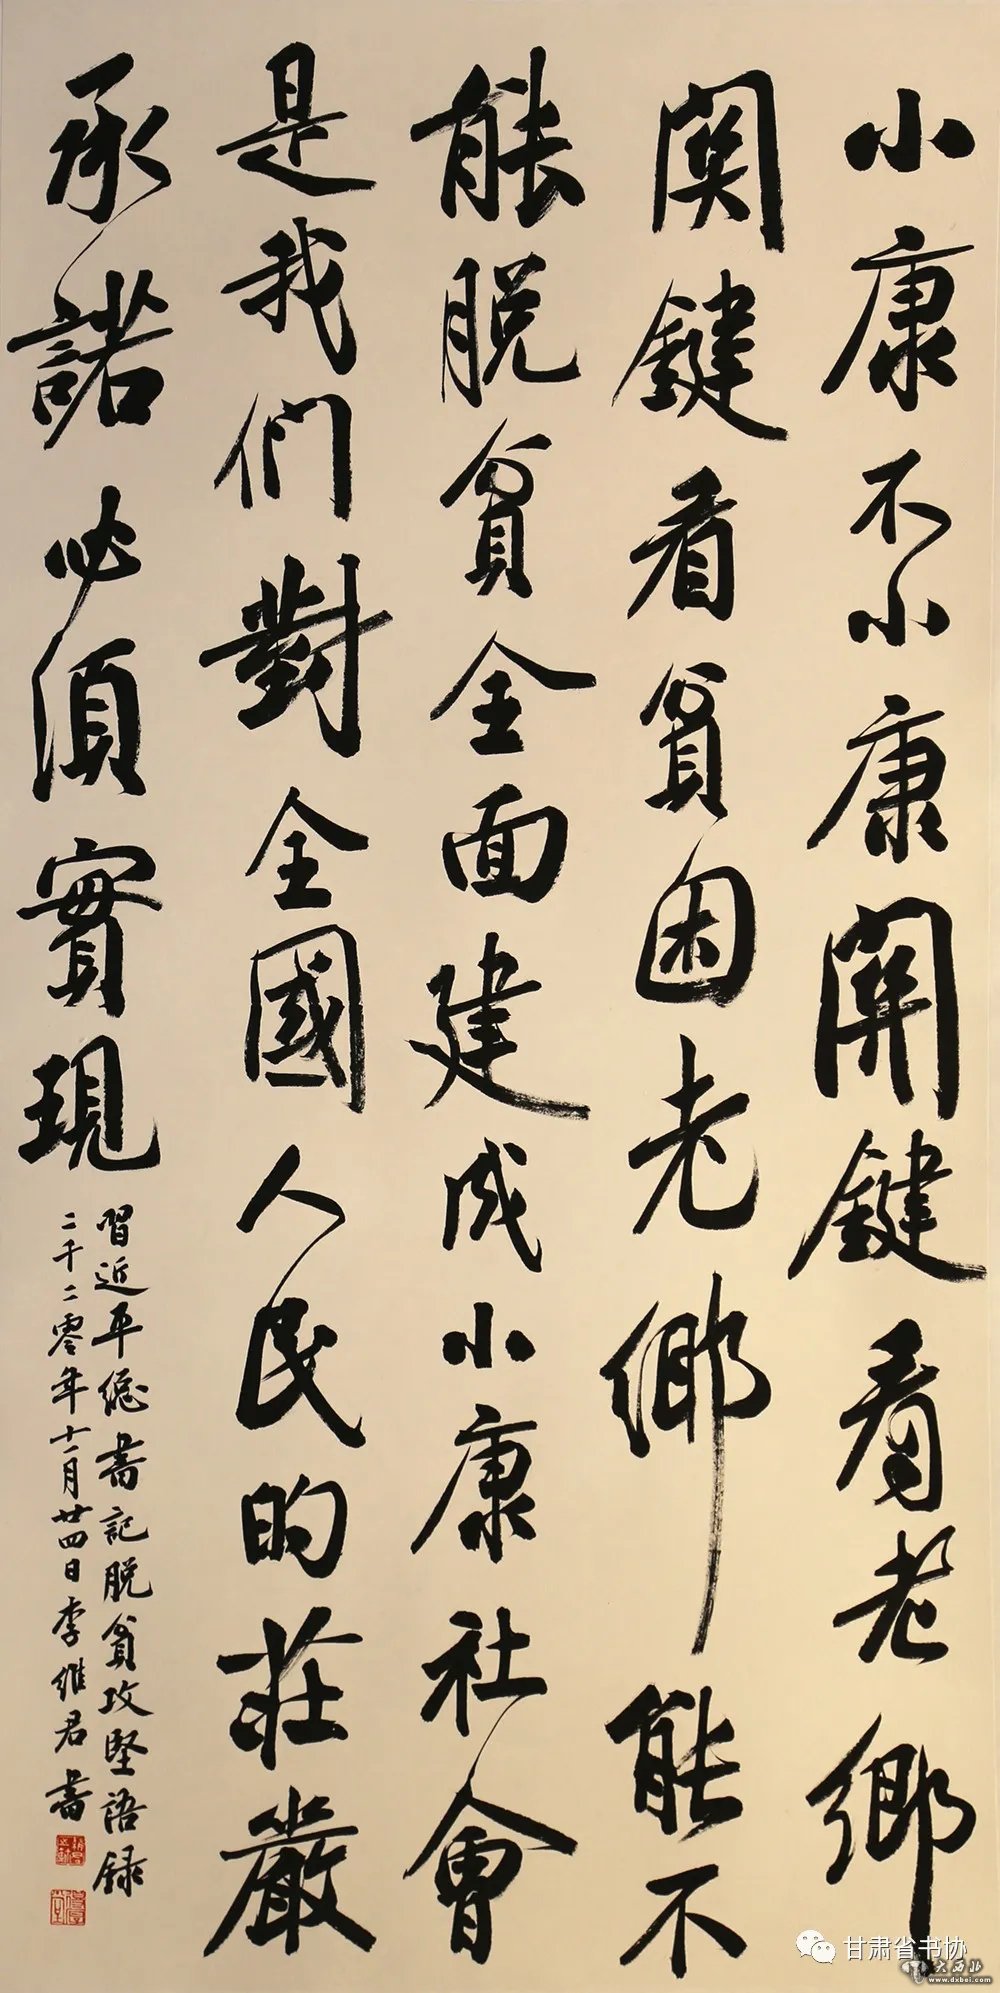 小康不小康關鍵看老鄉
関鍵看貧困老鄉能不
能脱貧全面建成小康社會
是我們對全國人民的莊嚴
承諾必須實現
習近平總書記脱貧攻堅語録
二千二零年十一月廿四日李維君書
甘肃省书协
大西北
www.dxbei.com